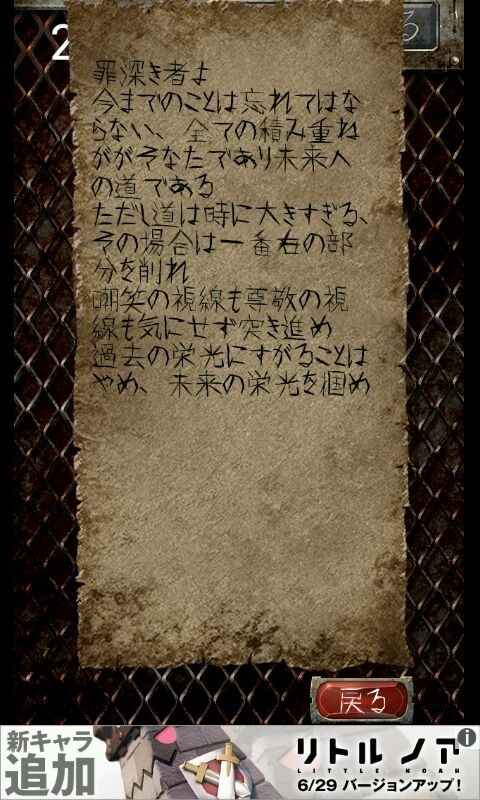 2
る
罪深き者よ
今までのことは忘れてはな
らない、全ての積み重ね
ががそなたであり未来へ
の道である
ただし道は時に大きすぎる、
その場合は一番右の部
分を削れ
嘲笑の視線も尊敬の視
線も気にせず突き進め
過去の栄光にすがることは
やめ、未来の栄光を掴め
戻る
新キャラ
追加
リトル ノア
LITTLE NOAH
6/29 バージョンアップ！